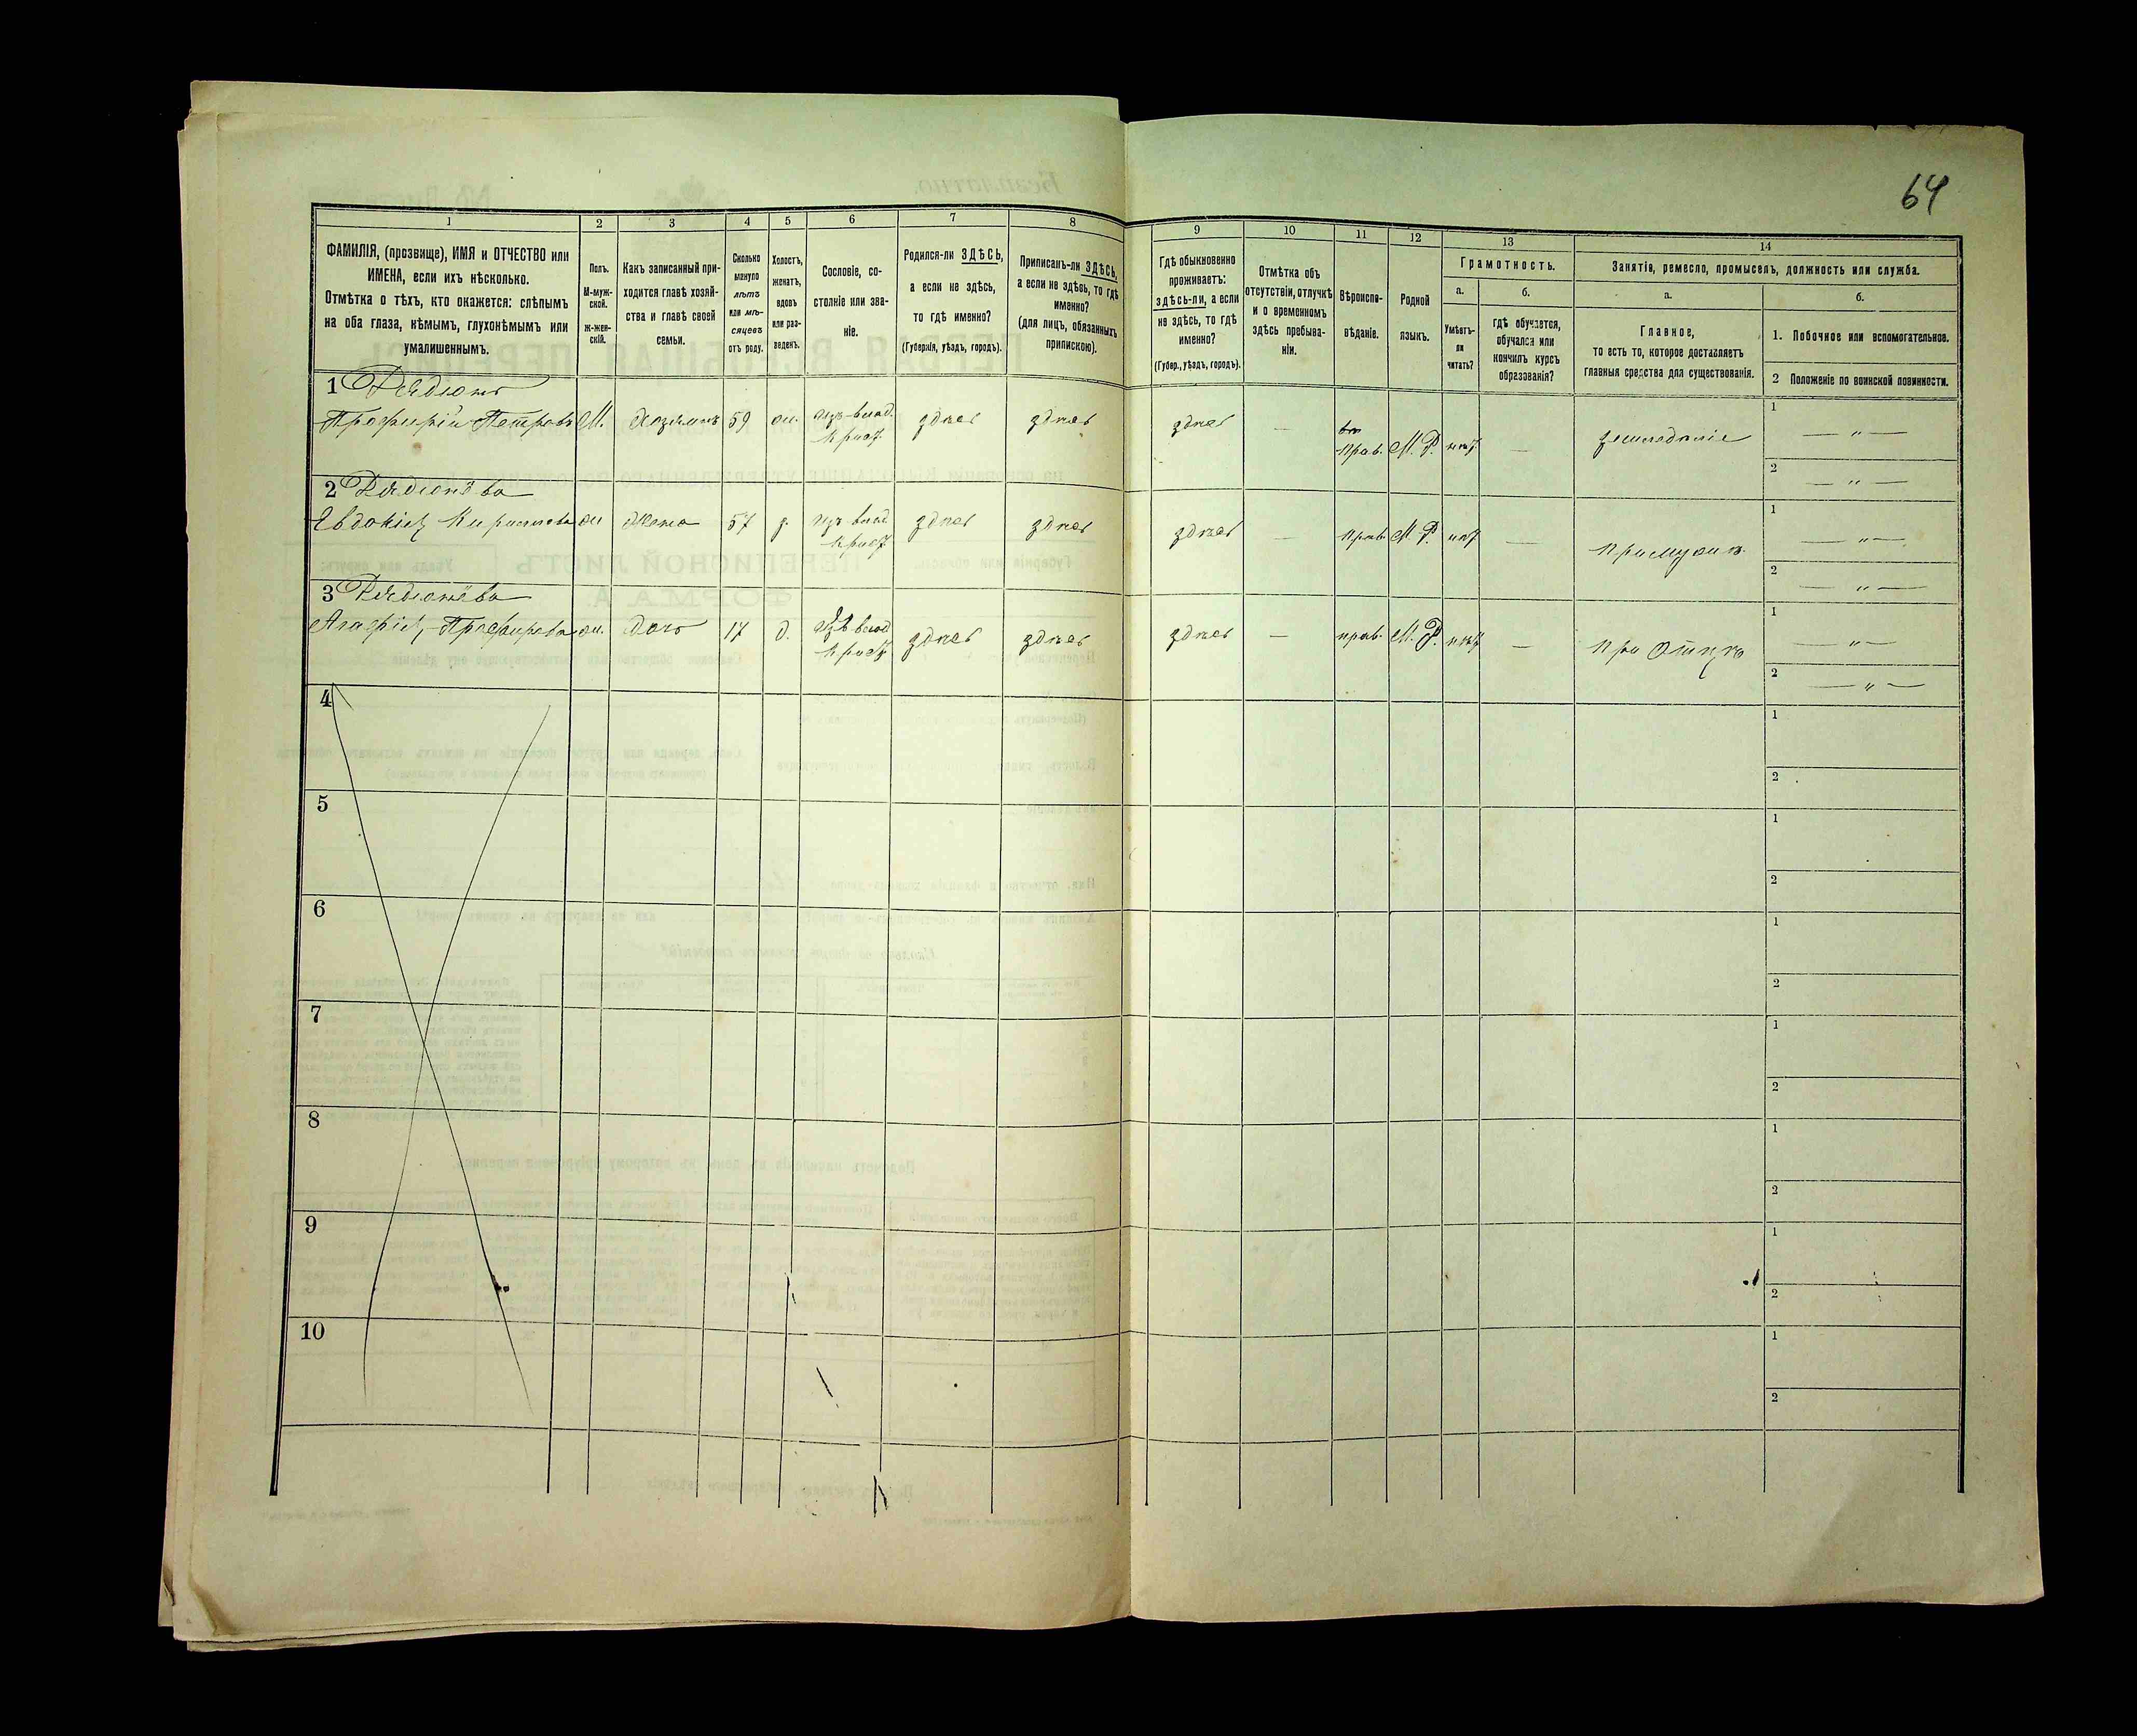 64
1
2
3
4
5
6
7
8
9
10
11
12
13
14
ФАМИЛІЯ, (прозвище), ИМЯ и ОТЧЕСТВО или
ИМЕНА, если ихъ нѣсколько.
Отмѣтка о тѣхъ, кто окажется: слѣпымъ
на оба глаза, нѣмымъ, глухонѣмымъ или
умалишеннымъ.
Полъ.
М-муж-
ской.
Ж-жен-
скій.
Какъ записанный при-
ходится главѣ хозяй-
ства и главѣ своей
семьи.
Сколько
минуло
лѣтъ
или мѣ-
сяцевъ
отъ роду.
Холостъ,
женатъ,
вдовъ
или раз-
веденъ.
Сословіе, со-
стояніе или зва-
ніе.
Родился-ли ЗДѢСЬ,
а если не здѣсь,
то гдѣ именно?
(Губернія, уѣздъ, городъ).
Приписанъ-ли ЗДѢСЬ,
а если не здѣсь, то гдѣ
именно?
(для лицъ, обязанныхъ
припискою).
Гдѣ обыкновенно
проживаетъ:
здѣсь-ли, а если
не здѣсь, то гдѣ
именно?
(Губер., уѣздъ, городъ).
Отмѣтка объ
отсутствіи, отлучкѣ
и о временномъ
здѣсь пребыва-
ніи.
Вѣроиспо-
вѣданіе.
Родной
языкъ.
Грамотность.
а.
Умѣетъ-
ли
читать?
б.
гдѣ обучается,
обучался или
кончилъ курсъ
образованія?
Занятія, ремесло, промыселъ, должность или служба.
а.
Главное,
то есть то, которое доставляетъ
главныя средства для существованія.
б.
1. Побочное или вспомогательное.
2 Положеніе по воинской повинности.
1
Петровъ М. Хозяинъ 59 здѣсь здѣсь здѣсь — прав. М. Р. нѣт — земледѣліе
1 — " —
2 — " —
2
Евдокія Кирилова жена 57 здѣсь здѣсь здѣсь — прав. М. Р. нѣт — при мужѣ
1 — " —
2 — " —
3
Агафія дочь 17 д. здѣсь здѣсь здѣсь — прав. М. Р. нѣт — при отцѣ
1 — " —
2 — " —
4
1
2
5
1
2
6
1
2
7
1
2
8
1
2
9
1
2
10
1
2